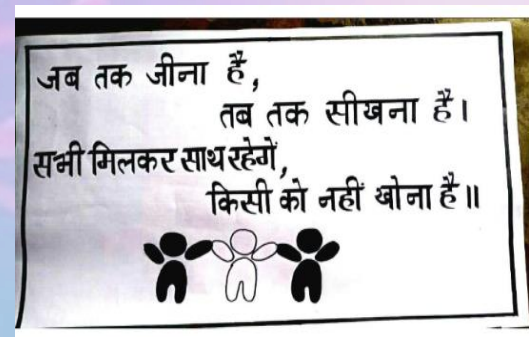 जब तक जीना है,
तब तक सीखना है।
सभी मिलकर साथ रहेगें,
किसी को नहीं खोना है॥